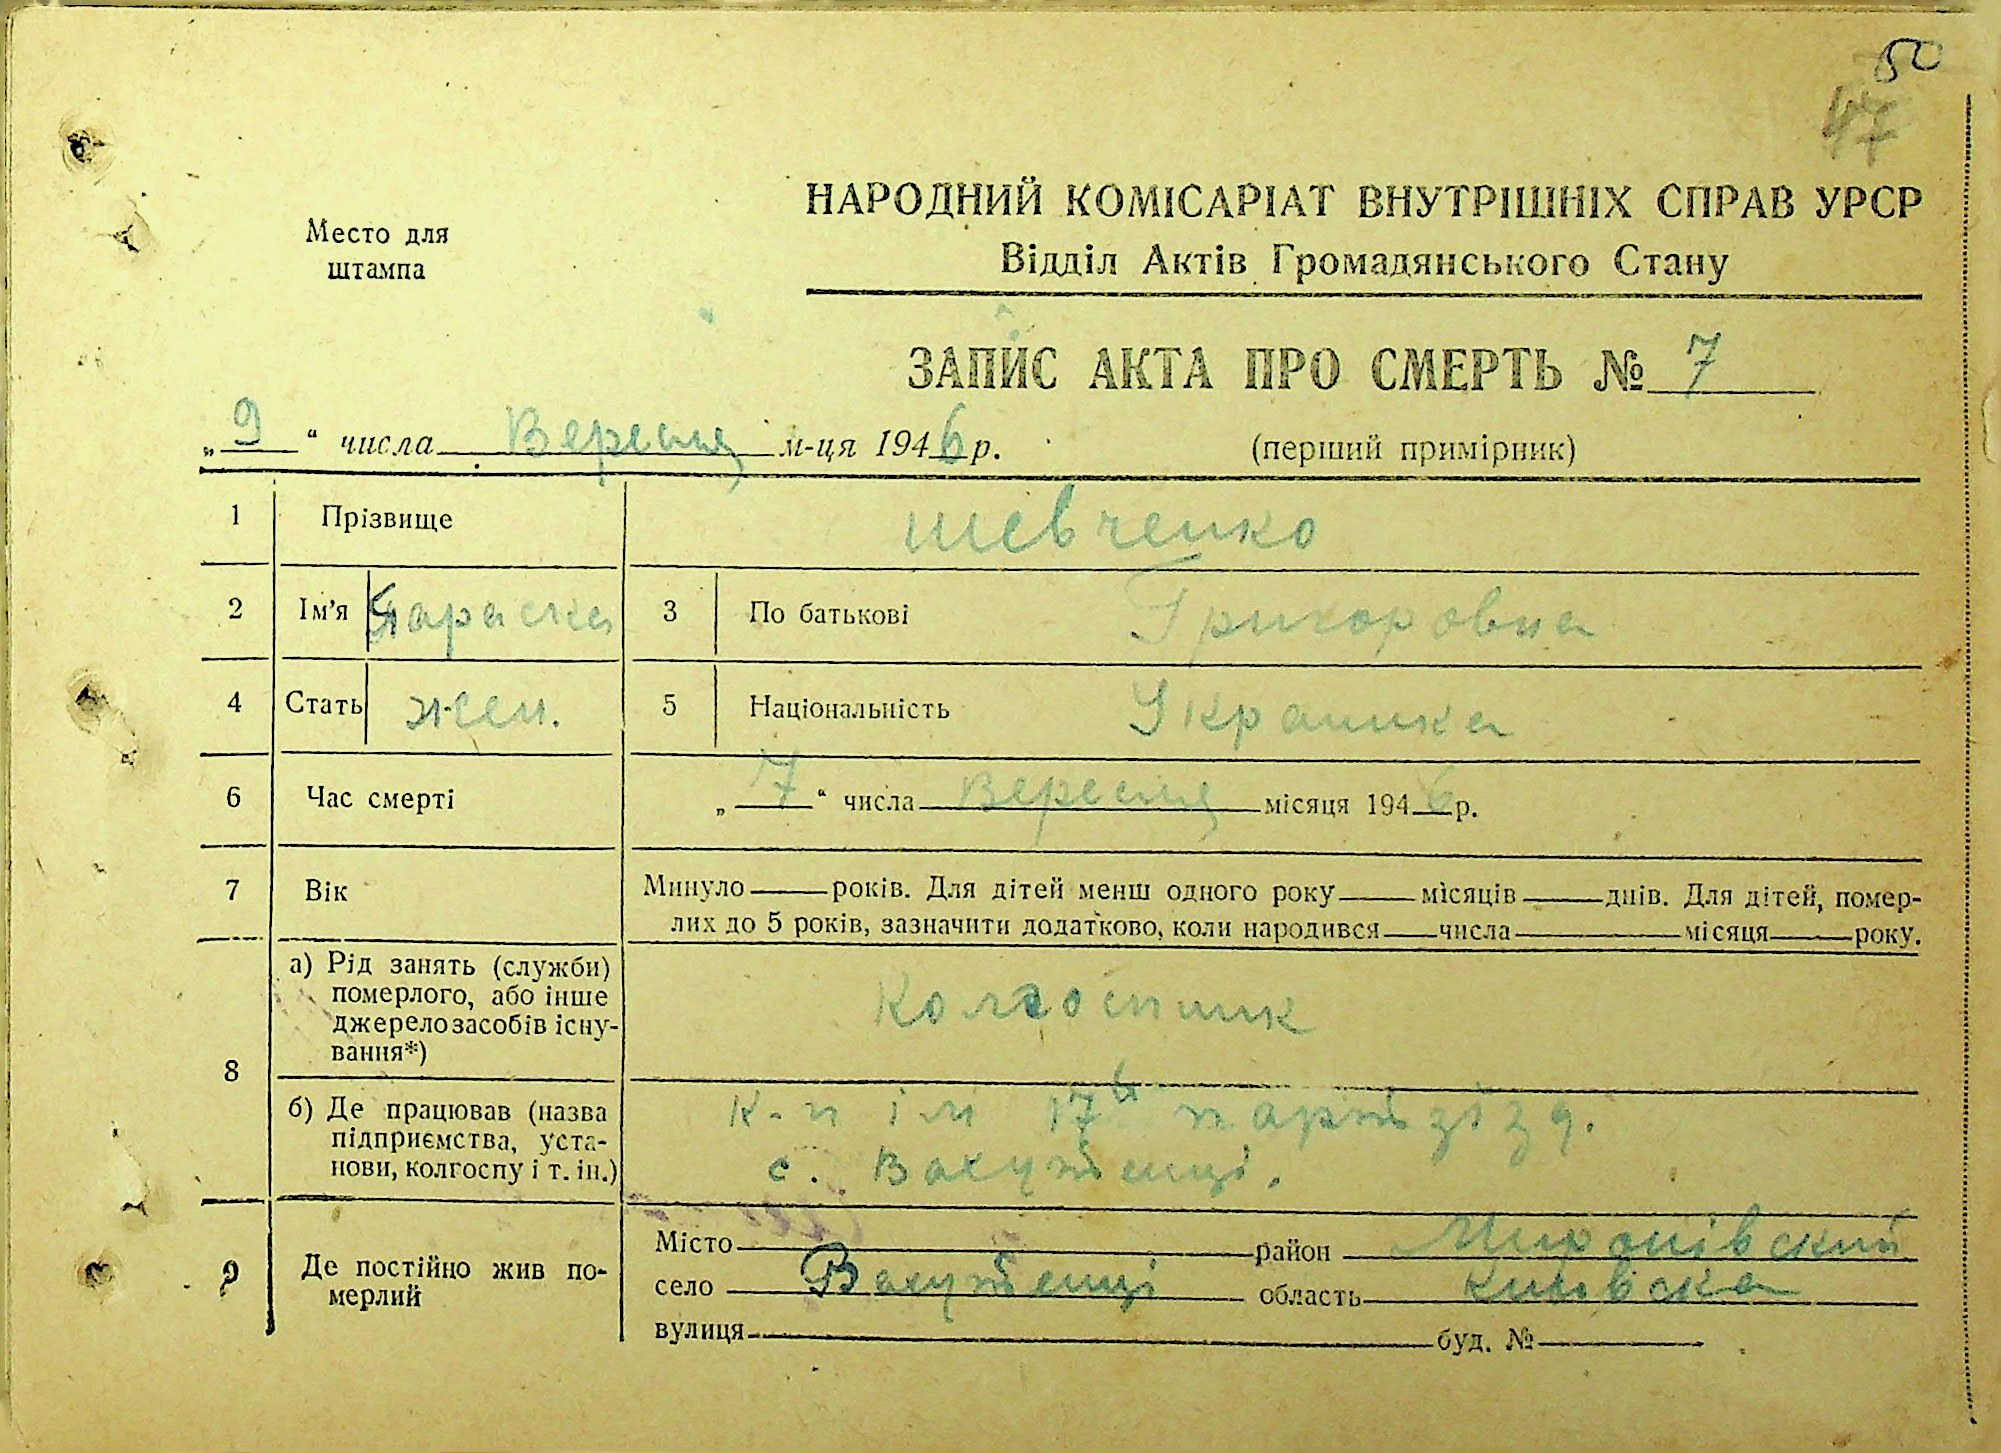 50
47
Место для
штампа
НАРОДНИЙ КОМІСАРІАТ ВНУТРІШНІХ СПРАВ УРСР
Відділ Актів Громадянського Стану
ЗАПИС АКТА ПРО СМЕРТЬ № 7
„ 9 “ числа Вересня м-ця 1946 р. (перший примірник)
1 Прізвище Шевченко
2 Ім'я Параска 3 По батькові Григоровна
4 Стать жен. 5 Національність Украинка
6 Час смерті „ 7 “ числа Вересня місяця 1946 р.
7 Вік Минуло — років. Для дітей менш одного року — місяців — днів. Для дітей, помер-
лих до 5 років, зазначити додатково, коли народився — числа — місяця — року.
8 а) Рід занять (служби)
померлого, або інше
джерело засобів існу-
вання*)
Колгоспник
б) Де працював (назва
підприємства, уста-
нови, колгоспу і т. ін.)
к-п ім 17 партзізд.
с. Вахутенці.
9 Де постійно жив по-
мерлий
Місто — район Миронівский
село Вахутенці область Киівска
вулиця — буд. № —